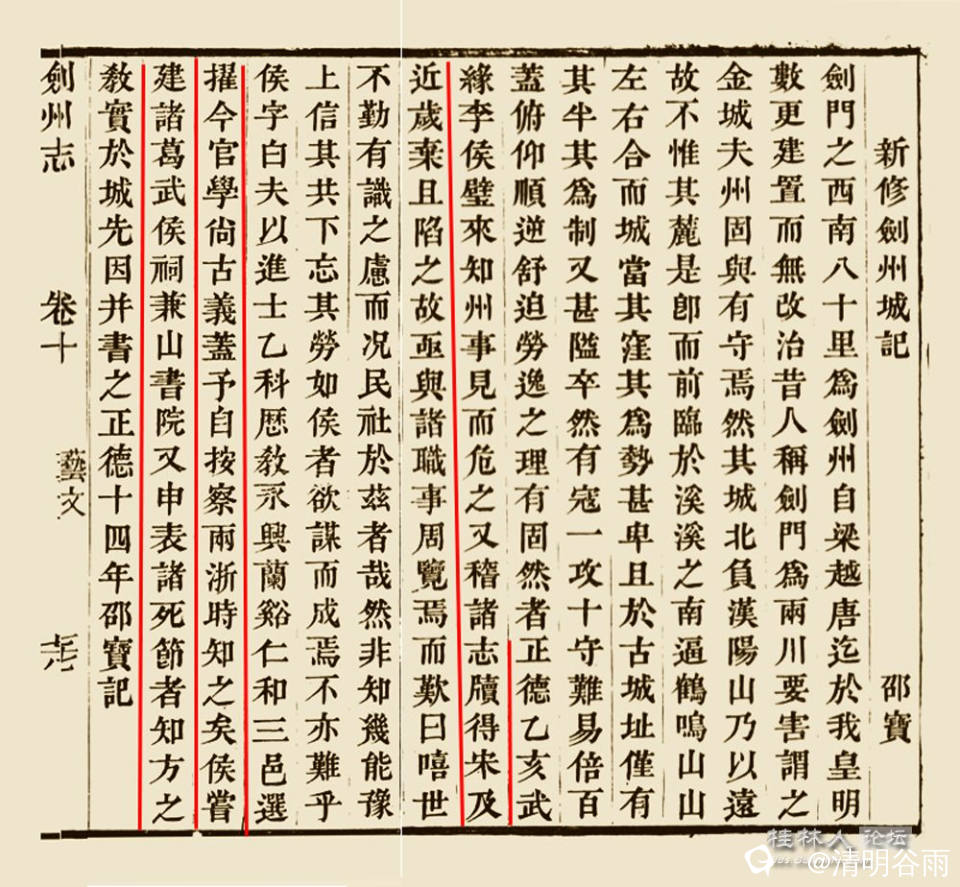 新修劍州城記 邵寶
劍門之西南八十里爲劍州自梁越唐迄於我皇明
數更建置而無改治昔人稱劍門爲兩川要害謂之
金城夫州固與有守焉然其城北負漢陽山乃以遠
故不惟其麓是卽而前臨於溪溪之南逼鶴鳴山山
左右合而城當其窪其爲勢甚卑且於古城址僅有
其半其爲制又甚隘卒然有寇一攻十守難易倍百
蓋俯仰順逆舒迫勞逸之理有固然者正德乙亥武
緣李侯璧來知州事見而危之又稽諸志牘得宋及
近歲棄且陷之故亟與諸職事周覽焉而歎曰嘻世
不勤有識之慮而况民社於茲者哉然非知幾能豫
上信其共下忘其勞如侯者欲謀而成焉不亦難乎
侯字白夫以進士乙科歷敎永興蘭谿仁和三邑選
擢今官學尙古義蓋予自按察兩浙時知之矣侯嘗
建諸葛武侯祠兼山書院又申表諸死節者知方之
敎實於城先因并書之正德十四年邵寶記
劍州志 卷十 藝文
桂林人 论坛
@清明谷雨